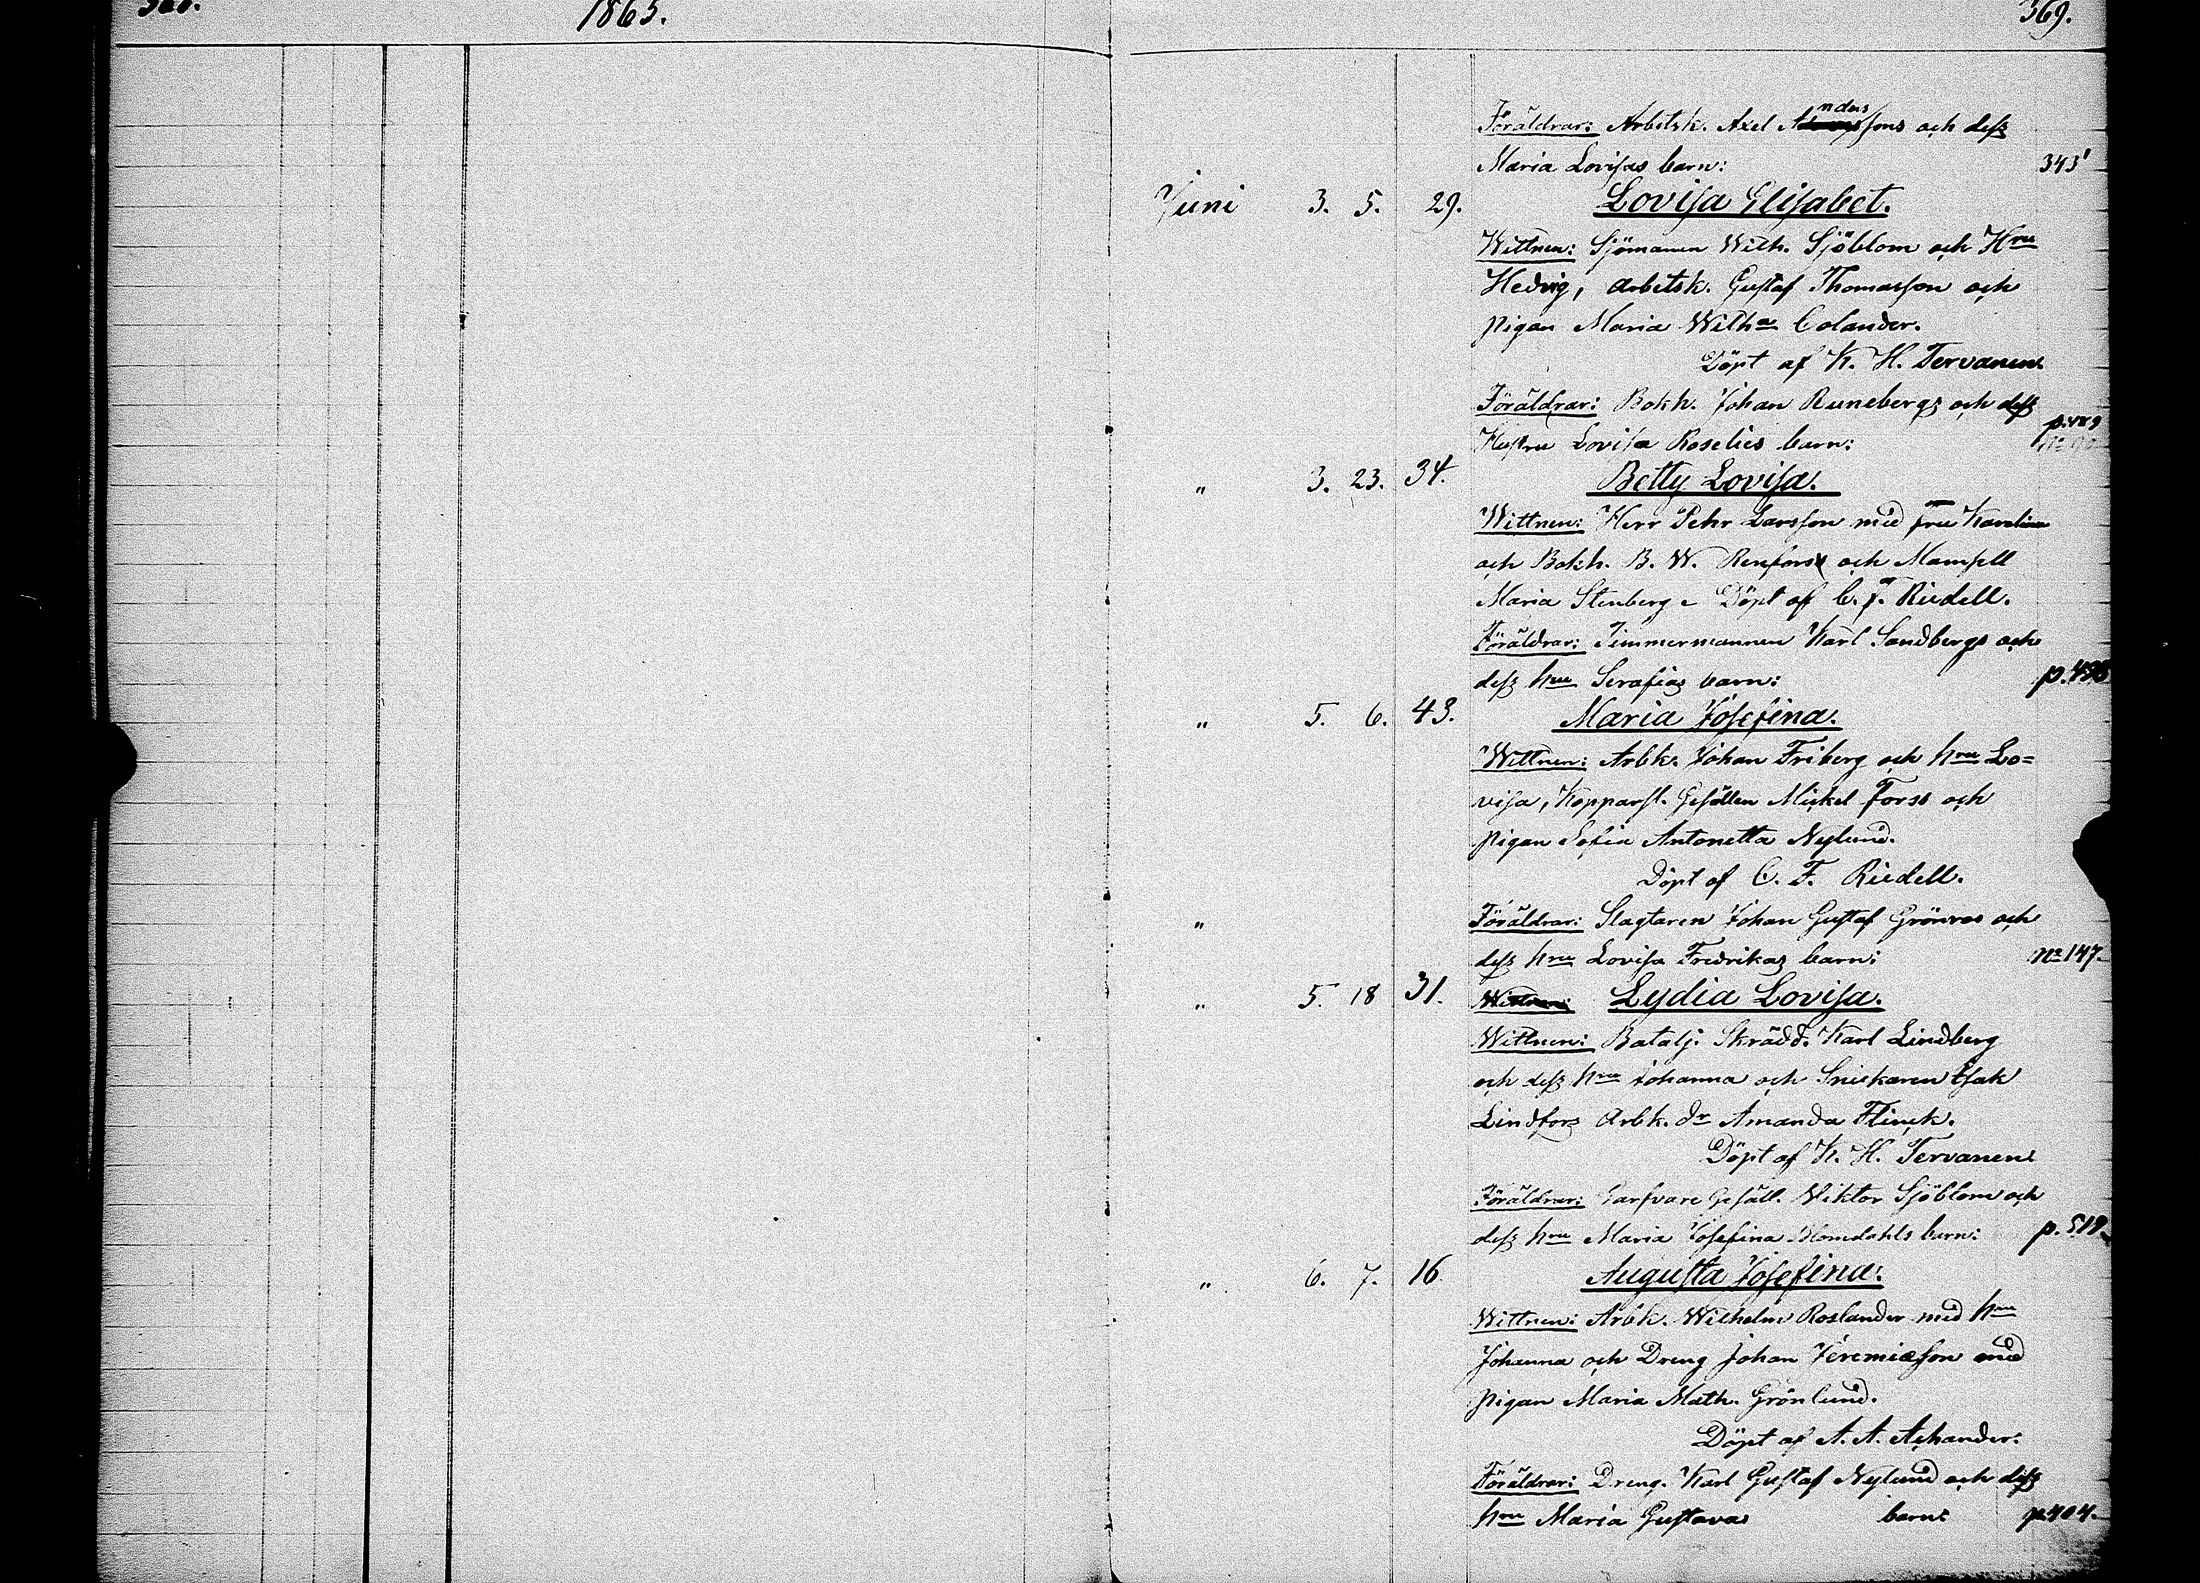 368. 1865. 369.
Föräldrar: Arbetsk. Axel Anderssons och dess
Maria Lovisas barn: 343
Juni 3. 5. 29. Lovisa Elisabet.
Wittnen: Sjömannen Wilh. Sjöblom och Hru
Hedvig, arbetsk. Gustaf Thomasson och
pigan Maria Wilha Colander.
Döpt af K. H. Tervanen.
Föräldrar: Bokh. Johan Runebergs och dess
Hustru Lovisa Roselies barn:
" 3. 23. 34. Betty Lovisa.
Wittnen: Herr Pehr Larsson med fru Karolina
och Bokh. B. W. Renfors och Mamsell
Maria Stenberg. Döpt af C. F. Riedell.
Föräldrar: Timmermannen Karl Sandbergs och
dess hru Serafias barn: p. 498
" 5. 6. 43. Maria Josefina.
Wittnen: Arbk. Johan Friberg och hru Lo=
visa, Kopparsl. Gesällen Mickel Forss och
pigan Sofia Antonetta Nylund.
Döpt af C. F. Riedell.
" Föräldrar: Slagtaren Johan Gustaf Grönros och
dess hru Lovisa Fredrikas barn: No 147.
" 5. 18 31. Wittnen: Lydia Lovisa.
Wittnen: Batalj. Skrädd. Karl Lindberg
och dess hru Johanna och Snickaren Isak
Lindfors Arbk. dr Amanda Flinck.
Döpt af K. H. Tervanen
Föräldrar: Garfvare Gesäll. Viktor Sjöblom och
dess hru Maria Josefina Blomdahls barn: p. 519.
" 6. 7. 16 Augusta Josefina.
Wittnen: Arbk. Wilhelm Roslander med hru
Johanna och Dreng Johan Jeremiasson med
pigan Maria Math. Grönlund.
Döpt af A. A. Achander.
Föräldrar: Dreng. Karl Gustaf Nylund och dess
hru Maria Gustavas barn: p. 404.